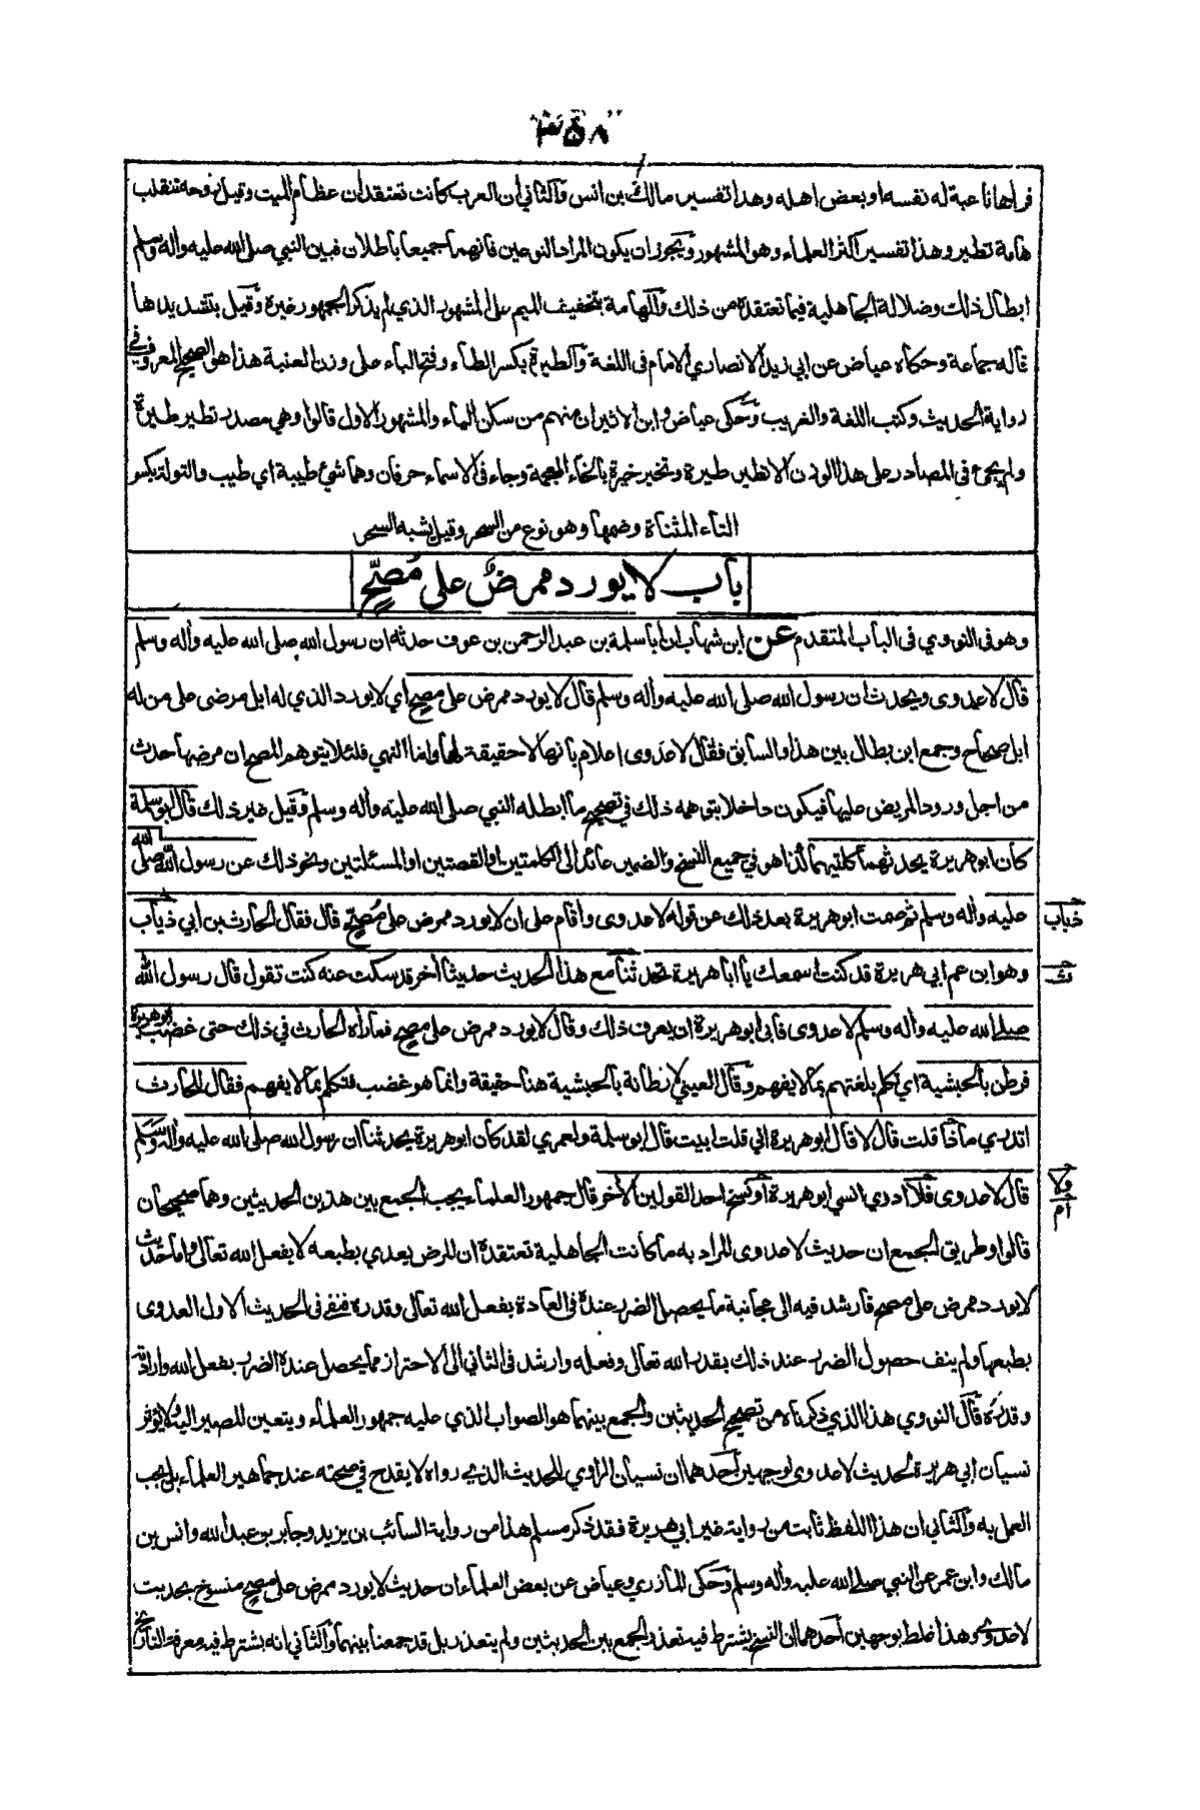 ٣٥٨
فراها ناعبة له نفسه او بعض اهله وهذا تفسير مالك بن انس والثاني ان العرب كانت تعتقد ان عظام الميت وقيل روحه تنقلب
هامة تطير وهذا تفسير اكثر العلماء وهو المشهور ويجوز ان يكون المراد النوعين فانهما جميعا باطلان فبين النبي صلى الله عليه واله وسلم
ابطال ذلك وضلالة الجاهلية فيما تعتقده من ذلك والهامة بتخفيف الميم على المشهور الذي لم يذكر الجمهور غيره وقيل بتشديدها
قاله جماعة وحكاه عياض عن ابي زيد الانصاري الامام فى اللغة والطيرة بكسر الطاء وفتح الياء على وزن العنبة هذا هو الصحيح المعروف في
رواية الحديث وكتب اللغة والغريب وحكى عياض وابن الاثير ان منهم من سكن الياء والمشهور الاول قالوا وهى مصدر تطير طيرة
ولم يجئ فى المصادر على هذا الوزن الا تطير طيرة وتخير خيرة بالخاء المعجمة وجاء فى الاسماء حرفان وهما شئ طيبة اي طيب والتولة بكسر
التاء المثناة وضمها وهو نوع من السحر وقيل يشبه السحر
باب لا يورد ممرض على مصح
وهو فى النووي فى الباب المتقدم عن ابن شهاب ان ابا سلمة بن عبد الرحمن بن عوف حدثه ان رسول الله صلى الله عليه واله وسلم
قال لا عدوى ويحدث ان رسول الله صلى الله عليه واله وسلم قال لا يورد ممرض على مصح اي لا يورد الذي له ابل مرضى على من له
ابل صحاح وجمع ابن بطال بين هذا والسابق فقال لا عدوى اعلام بانها لا حقيقة لها واما النهي فلئلا يتوهم المصح ان مرضها حدث
من اجل ورود المريض عليها فيكون داخلا بتوهمه ذلك في تصحيح ما ابطله النبي صلى الله عليه واله وسلم وقيل غير ذلك قال ابو سلمة
كان ابو هريرة يحدثهما كلتيهما كذا هو في جميع النسخ والضمير عائد الى الكلمتين او القصتين او المسئلتين ونحو ذلك عن رسول الله صلى الله
عليه واله وسلم ثم صمت ابو هريرة بعد ذلك عن قوله لا عدوى واقام على ان لا يورد ممرض على مصح قال فقال الحارث بن ابي ذباب
ذباب
وهو ابن عم ابي هريرة قد كنت اسمعك يا ابا هريرة تحدثنا مع هذا الحديث حديثا اخر قد سكت عنه كنت تقول قال رسول الله
صلى الله عليه واله وسلم لا عدوى فابى ابو هريرة ان يعرف ذلك وقال لا يورد ممرض على مصح فماراه الحارث في ذلك حتى غضب ابو هريرة
فرطن بالحبشية اي تكلم بلغتهم بما لا يفهم وقال العيني لا رطانة بالحبشية هنا حقيقة وانما هو غضب فتكلم بما لا يفهم فقال للحارث
اتدري ماذا قلت قال لا قال ابو هريرة اني قلت ابيت قال ابو سلمة ولعمري لقد كان ابو هريرة يحدثنا ان رسول الله صلى الله عليه واله وسلم
قال لا عدوى فلا ادري انسي ابو هريرة او نسخ احد القولين الاخر قال جمهور العلماء يجب الجمع بين هذين الحديثين وهما صحيحان
ولا
ام
قالوا وطريق الجمع ان حديث لا عدوى المراد به ما كانت الجاهلية تعتقده ان المرض يعدي بطبعه لا يفعل الله تعالى واما حديث
لا يورد ممرض على مصح فارشد فيه الى مجانبة ما يحصل الضرر عنده فى العادة بفعل الله تعالى وقدره فنفى فى الحديث الاول العدوى
بطبعها ولم ينف حصول الضرر عند ذلك بقدر الله تعالى وفعله وارشد فى الثاني الى الاحتراز مما يحصل عنده الضرر بفعل الله وارادته
وقدره قال النووي هذا الذي ذكرناه من تصحيح الحديثين والجمع بينهما هو الصواب الذي عليه جمهور العلماء ويتعين المصير اليه ولا يؤثر
نسيان ابي هريرة لحديث لا عدوى لوجهين احدهما ان نسيان الراوي للحديث الذي رواه لا يقدح في صحته عند جماهير العلماء بل يجب
العمل به والثاني ان هذا اللفظ ثابت من رواية غير ابي هريرة فقد ذكر مسلم هذا من رواية السائب بن يزيد وجابر بن عبد الله وانس بن
مالك وابن عمر عن النبي صلى الله عليه واله وسلم وحكى المازري وعياض عن بعض العلماء ان حديث لا يورد ممرض على مصح منسوخ بحديث
لا عدوى وهذا غلط بوجهين احدهما ان النسخ يشترط فيه تعذر الجمع بين الحديثين ولم يتعذر بل قد جمعنا بينهما والثاني انه يشترط فيه معرفة التاريخ